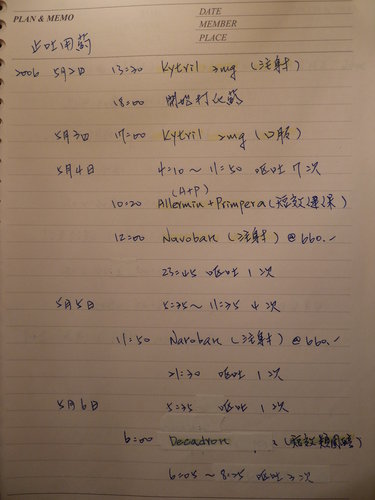 PLAN & MEMO
DATE
MEMBER
PLACE
止吐用药
2006 5月2日 13:30 Kytril 2mg (注射)
18:00 開始打化药
5月3日 17:00 Kytril 2mg (口服)
5月4日 4:10 ~ 11:50 嘔吐 7 次
(A+P)
10:20 Allermin + Primpera (短效健保)
12:00 Navoban (注射) @ 660.-
23:45 嘔吐 1 次
5月5日 5:35 ~ 11:35 4 次
11:50 Navoban (注射) @ 660.-
21:30 嘔吐 1 次
5月6日 5:35 嘔吐 1 次
6:00 Decadron (短效類固醇)
6:05 ~ 8:35 嘔吐 3 次